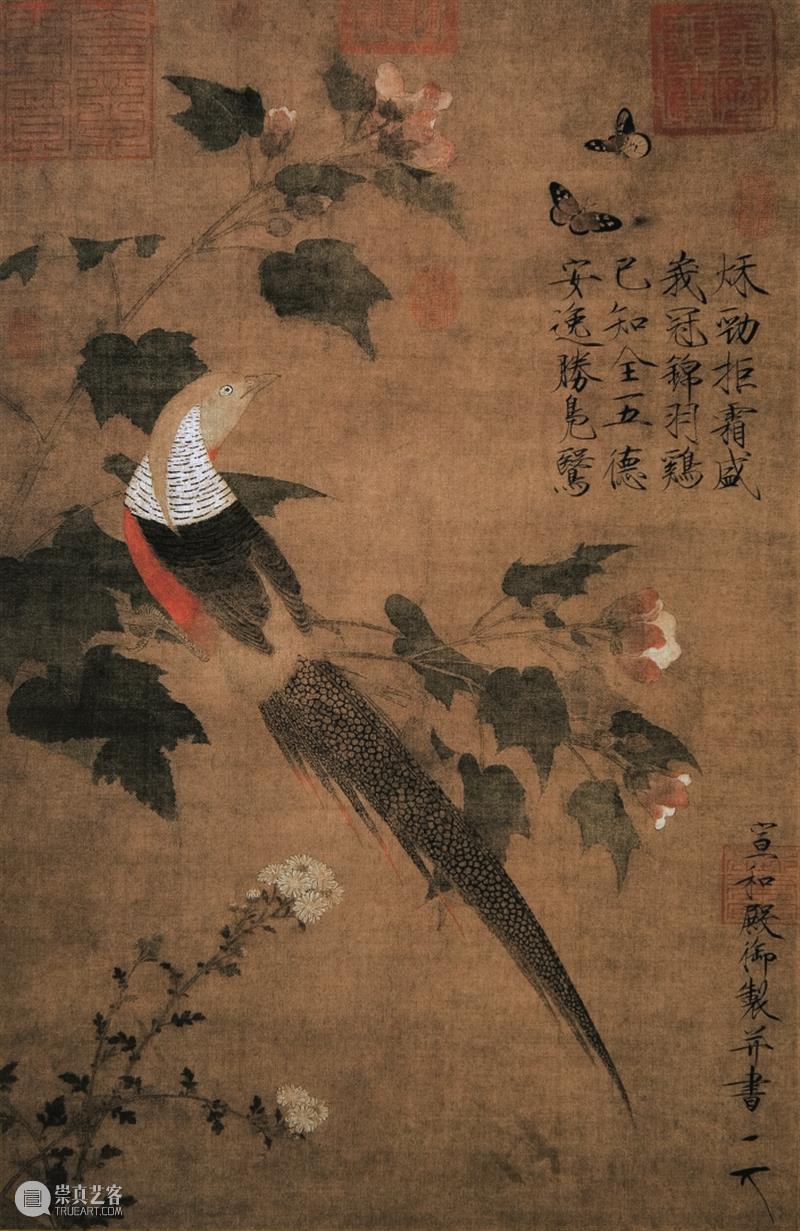 秌勁拒霜盛
峩冠錦羽鷄
已知全五德
安逸勝鳧鷖
宣和殿御製并書
崇真艺客
TRUEART.COM